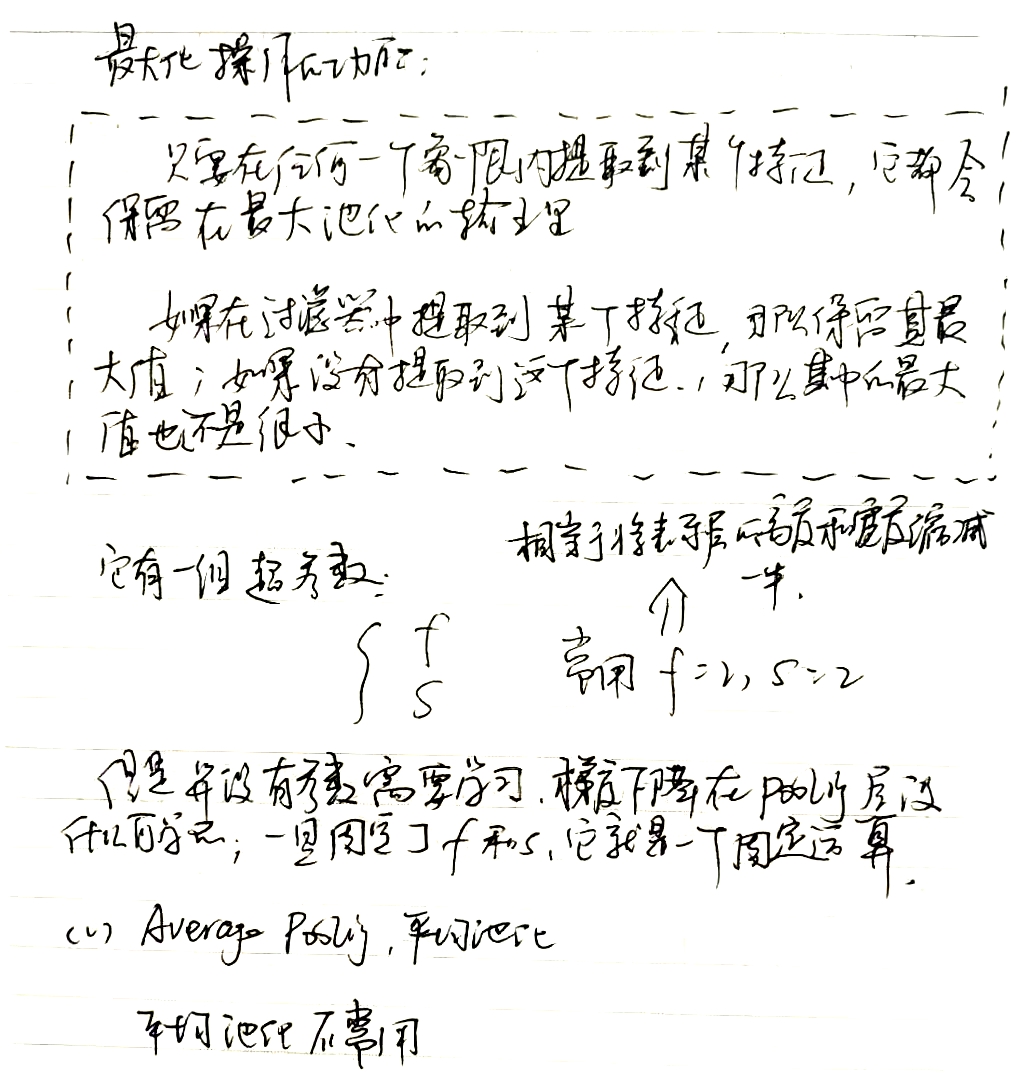 最大化操作的功能:
只要在任何一个象限内提取到某个特征,它都会
保留在最大池化的输出里
如果在过滤器中提取到某个特征,那么保留其最
大值;如果没有提取到这个特征,那么其中的最大
值也还是很小.
相当于将表示层的高度和宽度缩减
一半.
它有一组超参数:
f
s
常用 f=2, s=2
但是并没有参数需要学习.梯度下降在pooling层没
什么可学的;一旦固定了f和s,它就是一个固定运算.
(2) Average Pooling,平均池化
平均池化不常用